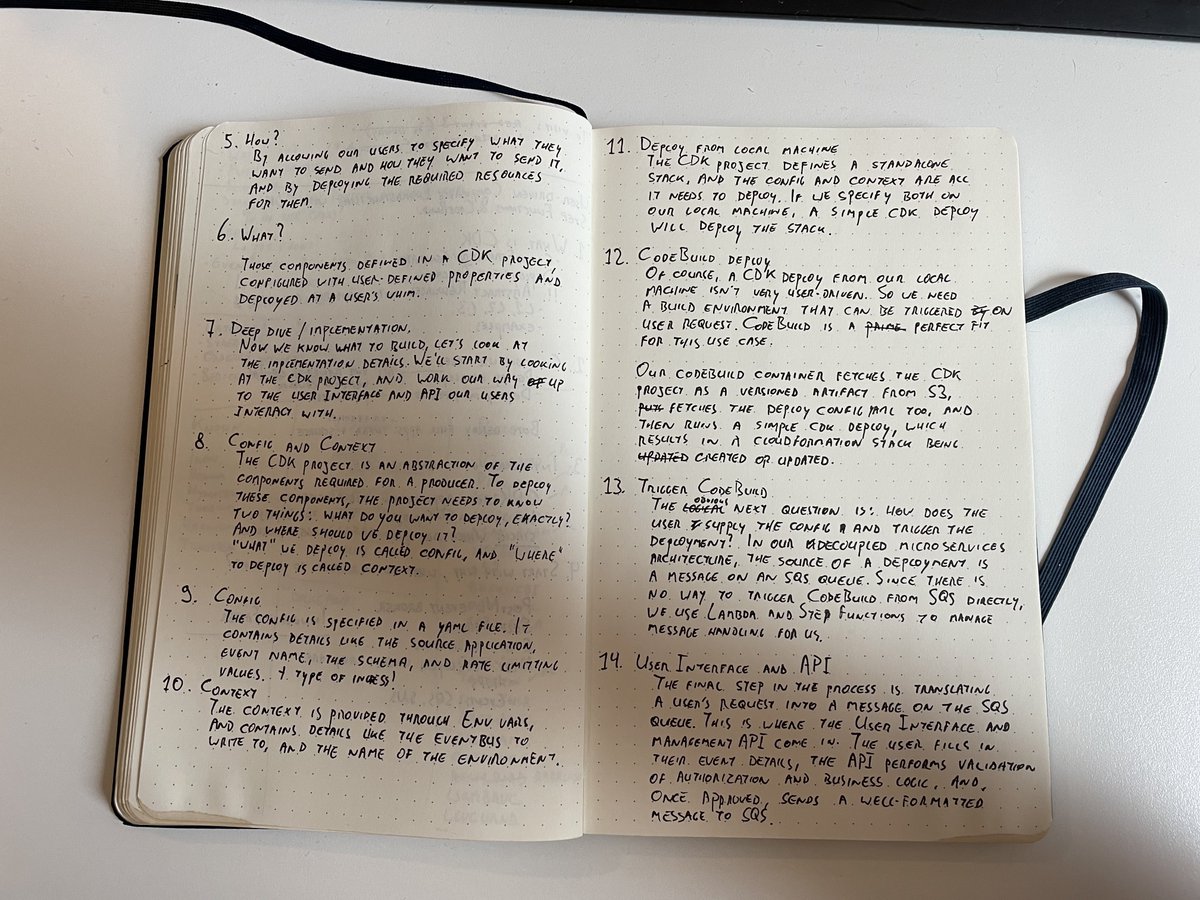 5. How?
By allowing our users to specify what they
want to send and how they want to send it,
and by deploying the required resources
for them.
6. What?
Those components defined in a CDK project,
configured with user-defined properties and
deployed at a user's whim.
7. Deep dive / implementation.
Now we know what to build, let's look at
the implementation details. We'll start by looking
at the CDK project, and work our way up
to the user interface and API our users
interact with.
8. Config and Context
The CDK project is an abstraction of the
components required for a producer. To deploy
these components, the project needs to know
two things: what do you want to deploy, exactly?
And where should we deploy it?
"What" we deploy is called config, and "where"
to deploy is called context.
9. Config
The config is specified in a yaml file. It
contains details like the source application,
event name, the schema, and rate limitting
values. + type of ingess!
10. Context
The context is provided through Env vars,
and contains details like the EventBus to
write to, and the name of the environment.
11. Deploy from local machine
The CDK project defines a standalone
stack, and the config and context are all
it needs to deploy. If we specify both on
our local machine, a simple cdk deploy
will deploy the stack.
12. CodeBuild deploy
Of course, a CDK deploy from our local
machine isn't very user-driven. So we need
a build environment that can be triggered by on
user request. CodeBuild is a prime perfect fit
for this use case.
Our codebuild container fetches the CDK
project as a versioned artifact from S3,
fetches the deploy config yaml too, and
then runs a simple cdk deploy, which
results in a cloudformation stack being
updated created or updated.
13. Trigger CodeBuild
The logical obvious next question is: how does the
user supply the config and trigger the
deployment? In our decoupled microservices
architecture, the source of a deployment is
a message on an SQS queue. Since there is
no way to trigger CodeBuild from SQS directly,
we use Lambda and Step Functions to manage
message handling for us.
14. User Interface and API
The final step in the process is translating
a user's request into a message on the SQS
queue. This is where the User Interface and
management API come in. The user fills in
their event details, the API performs validation
of authorization and business logic, and,
once approved, sends a well-formatted
message to SQS.